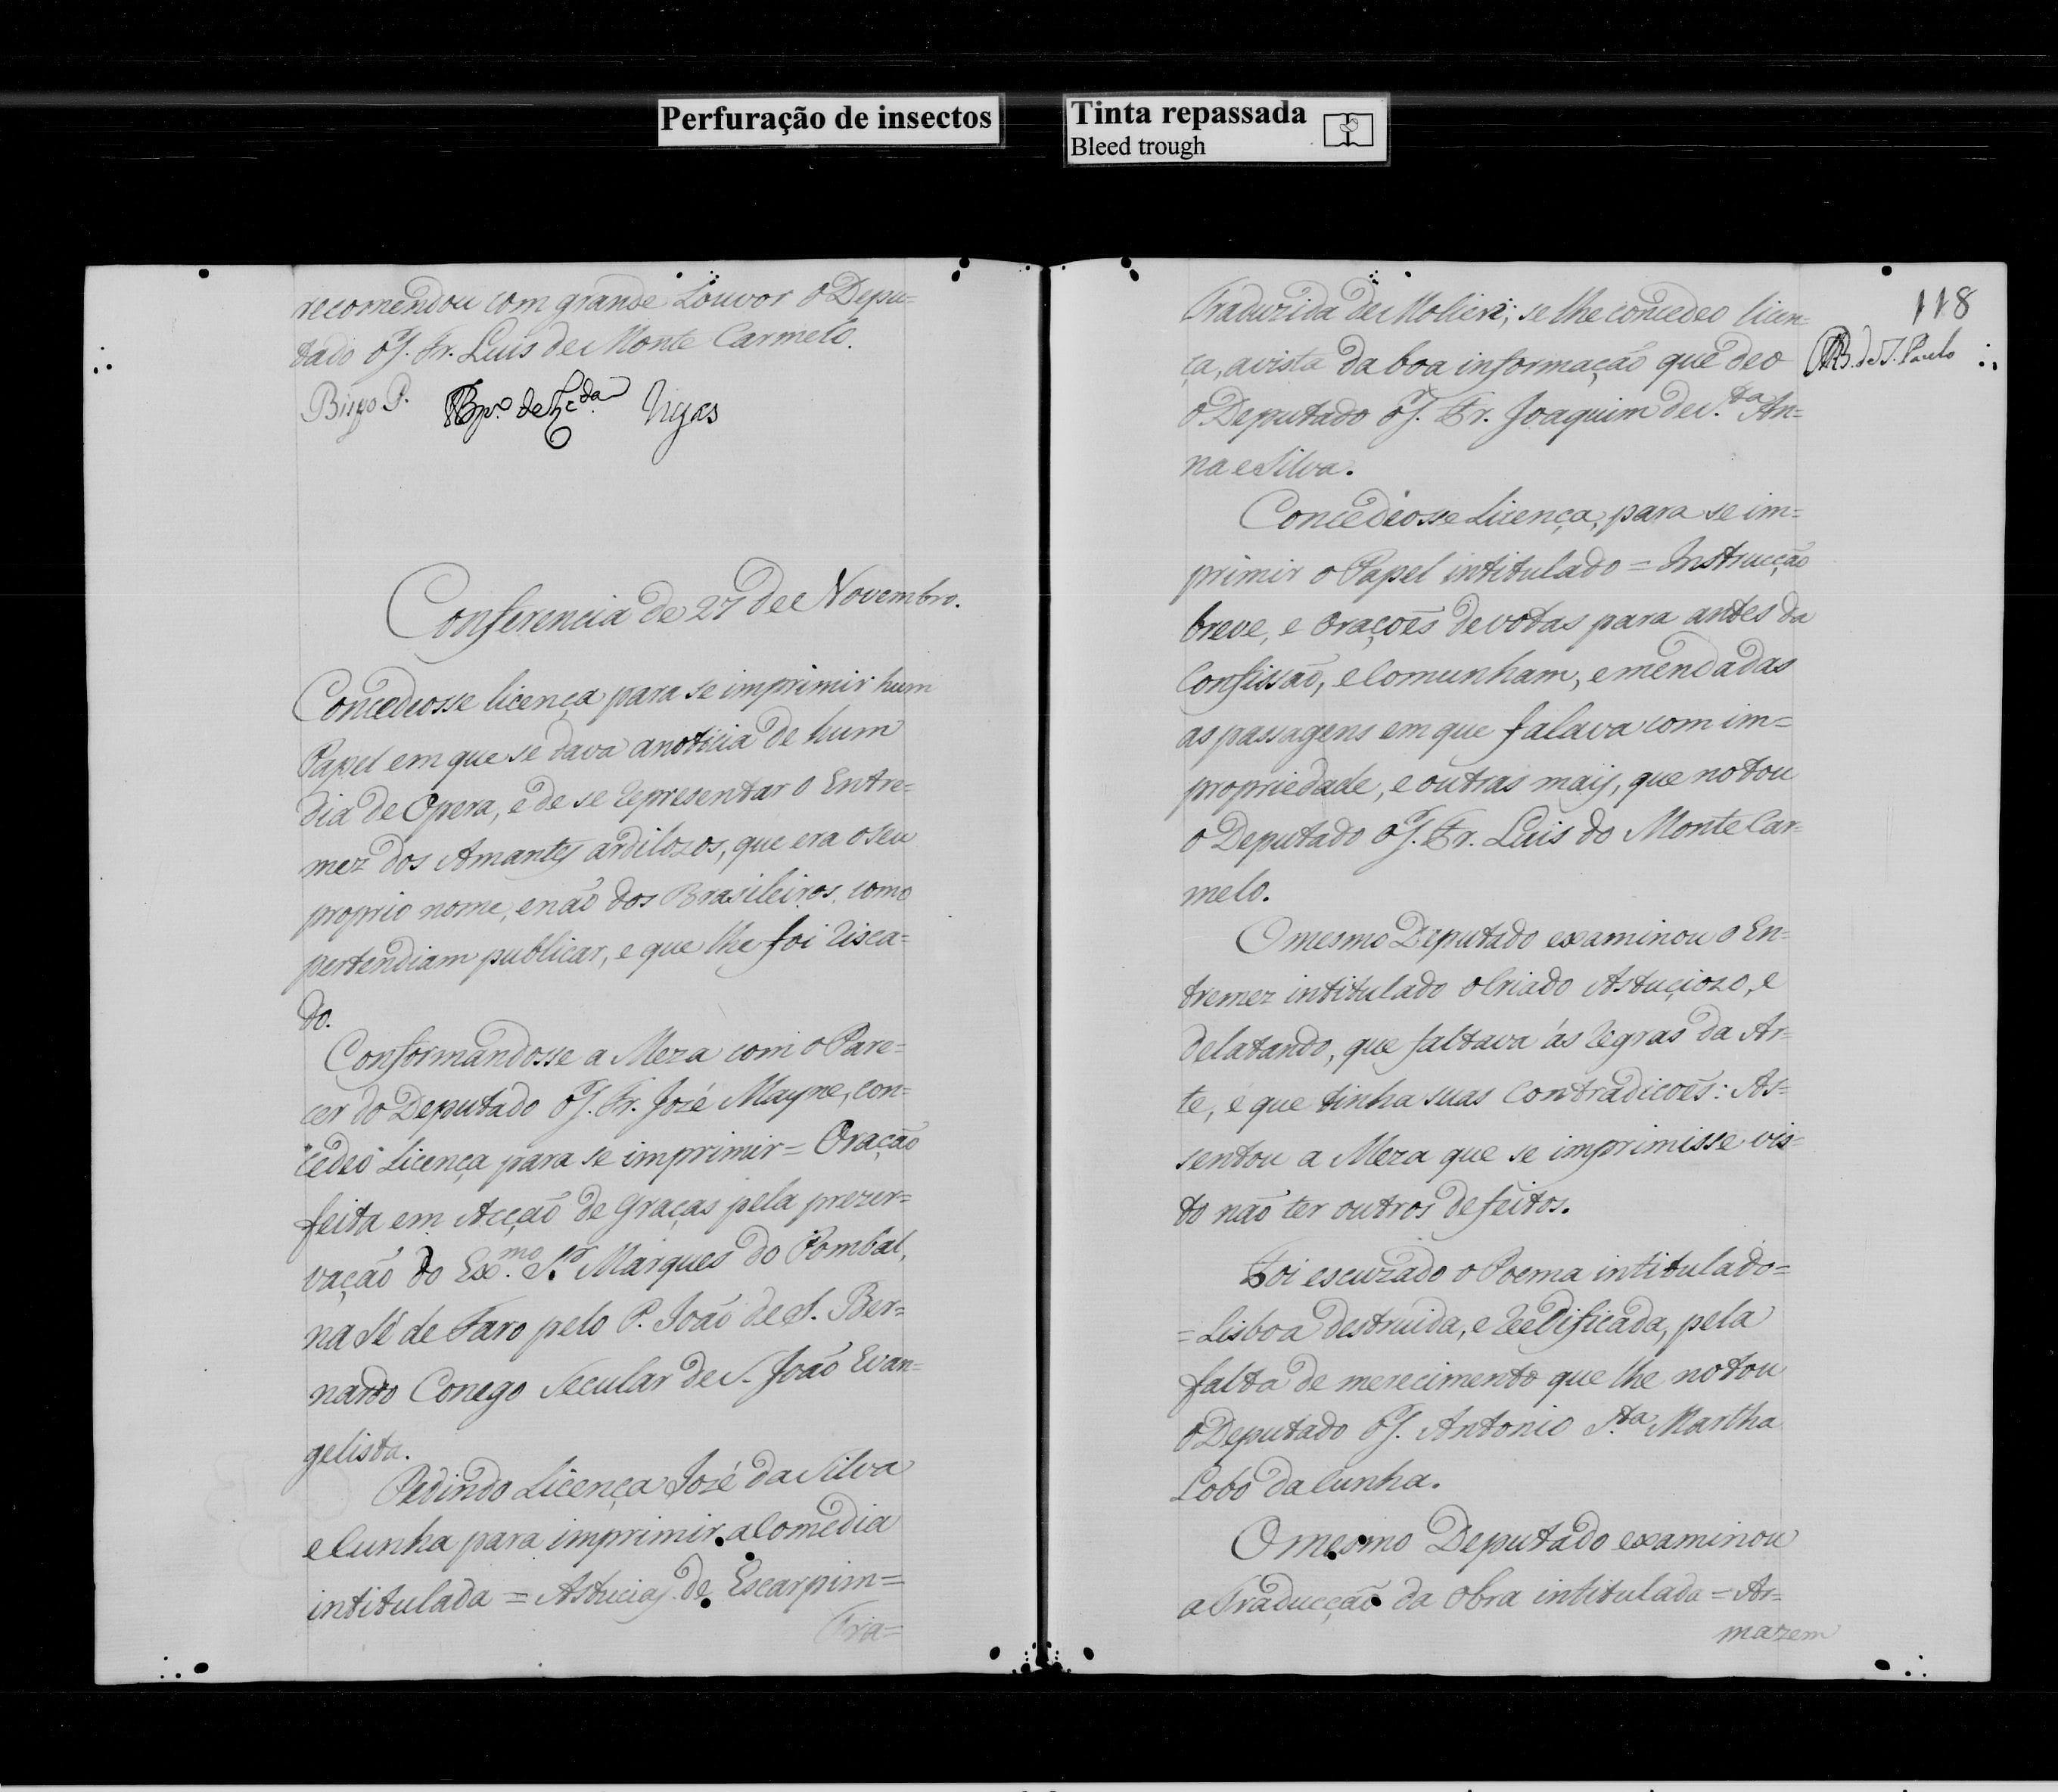 Perfuração de insectos
Tinta repassada
Bleed trough
recomendou com grande Louvor o Depu=
tado o P. Fr. Luis de Monte Carmelo.
Bispo P.
Conferencia de 27 de Novembro.
Concedeosse licença para se imprimir hum
Papel em que se dava a noticia de hum
dia de Opera, e de se representar o Entre=
mez dos Amantes ardilozos, que era o seu
proprio nome, e não dos Brasileiros, como
pertendiam publicar, e que lhe foi risca=
do.
Conformandosse a Meza com o Pare=
cer do Deputado o P. Fr. Jozé Mayne, con=
cedeo Licença para se imprimir = Oração
feita em Acção de Graças pela prezer=
vação do Ex.mo S.r Marques do Pombal,
na Sé de Faro pelo P. João de S. Ber=
nardo Conego Secular de S. João Evan=
gelista.
Pedindo Licença Jozé da Silva
e Cunha para imprimir a Comedia
intitulada = Astucias de Escarpim =
Tra=
118
B. de S. Paulo
Traduzida de Moliere; se lhe concedeo licen=
ça, a vista da boa informação que deo
o Deputado o P. Fr. Joaquim de S.ta An=
na e Silva.
Concedeosse Licença, para se im=
primir o Papel intitulado = Instrucção
breve, e Oraçoẽs devotas para antes da
Confissaõ, e Comunham, emendadas
as passagens em que falava com im=
propriedade, e outras mais, que notou
o Deputado o P. Fr. Luis do Monte Car=
melo.
O mesmo Deputado examinou o En=
tremez intitulado o Criado Astuçiozo, e
delatando, que faltava ás regras da Ar=
te, e que tinha suas Contradicoẽs: As=
sentou a Meza que se imprimisse vis=
to naõ ter outros defeitos.
Foi escuzado o Poema intitulado =
= Lisboa destruida, e reedificada, pela
falta de merecimento que lhe notou
o Deputado o P. Antonio S.ta Martha
Lobo da Cunha.
O mesmo Deputado examinou
a Traducção da Obra intitulada = Ar=
mazem